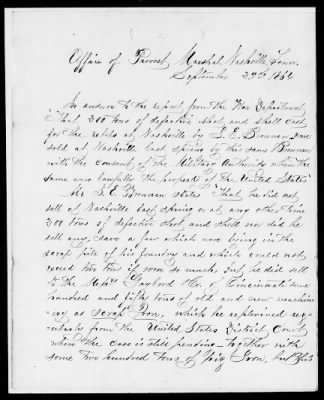 Office of Provost Marshal Nashville Tenn.
September 29th 1862
In answer to the report from the War Department,
"That 200 tons of defective shot, and shell cast
for the rebels at Nashville by T. E. Brennan was
sold at Nashville last spring by this same Brennan
with the consent of the Military Authority when the
same was lawfully the property of the United States"
Mr T. E. Brennan states "That he did not
sell at Nashville last spring or at any other time
200 tons of defective shot and shell nor did he
sell any, save a few which were lying in the
scrap pile of his foundry and which could not,
exceed two tons if even so much, but he did sell
to the Messrs Gaylord Co. of Cincinnati one
hundred and fifty tons of old and new machin
ery as scrap Iron, which he replevined reg
ularly from the United States District Court,
where the case is still pending together with
some two hundred tons of Pig Iron, but this